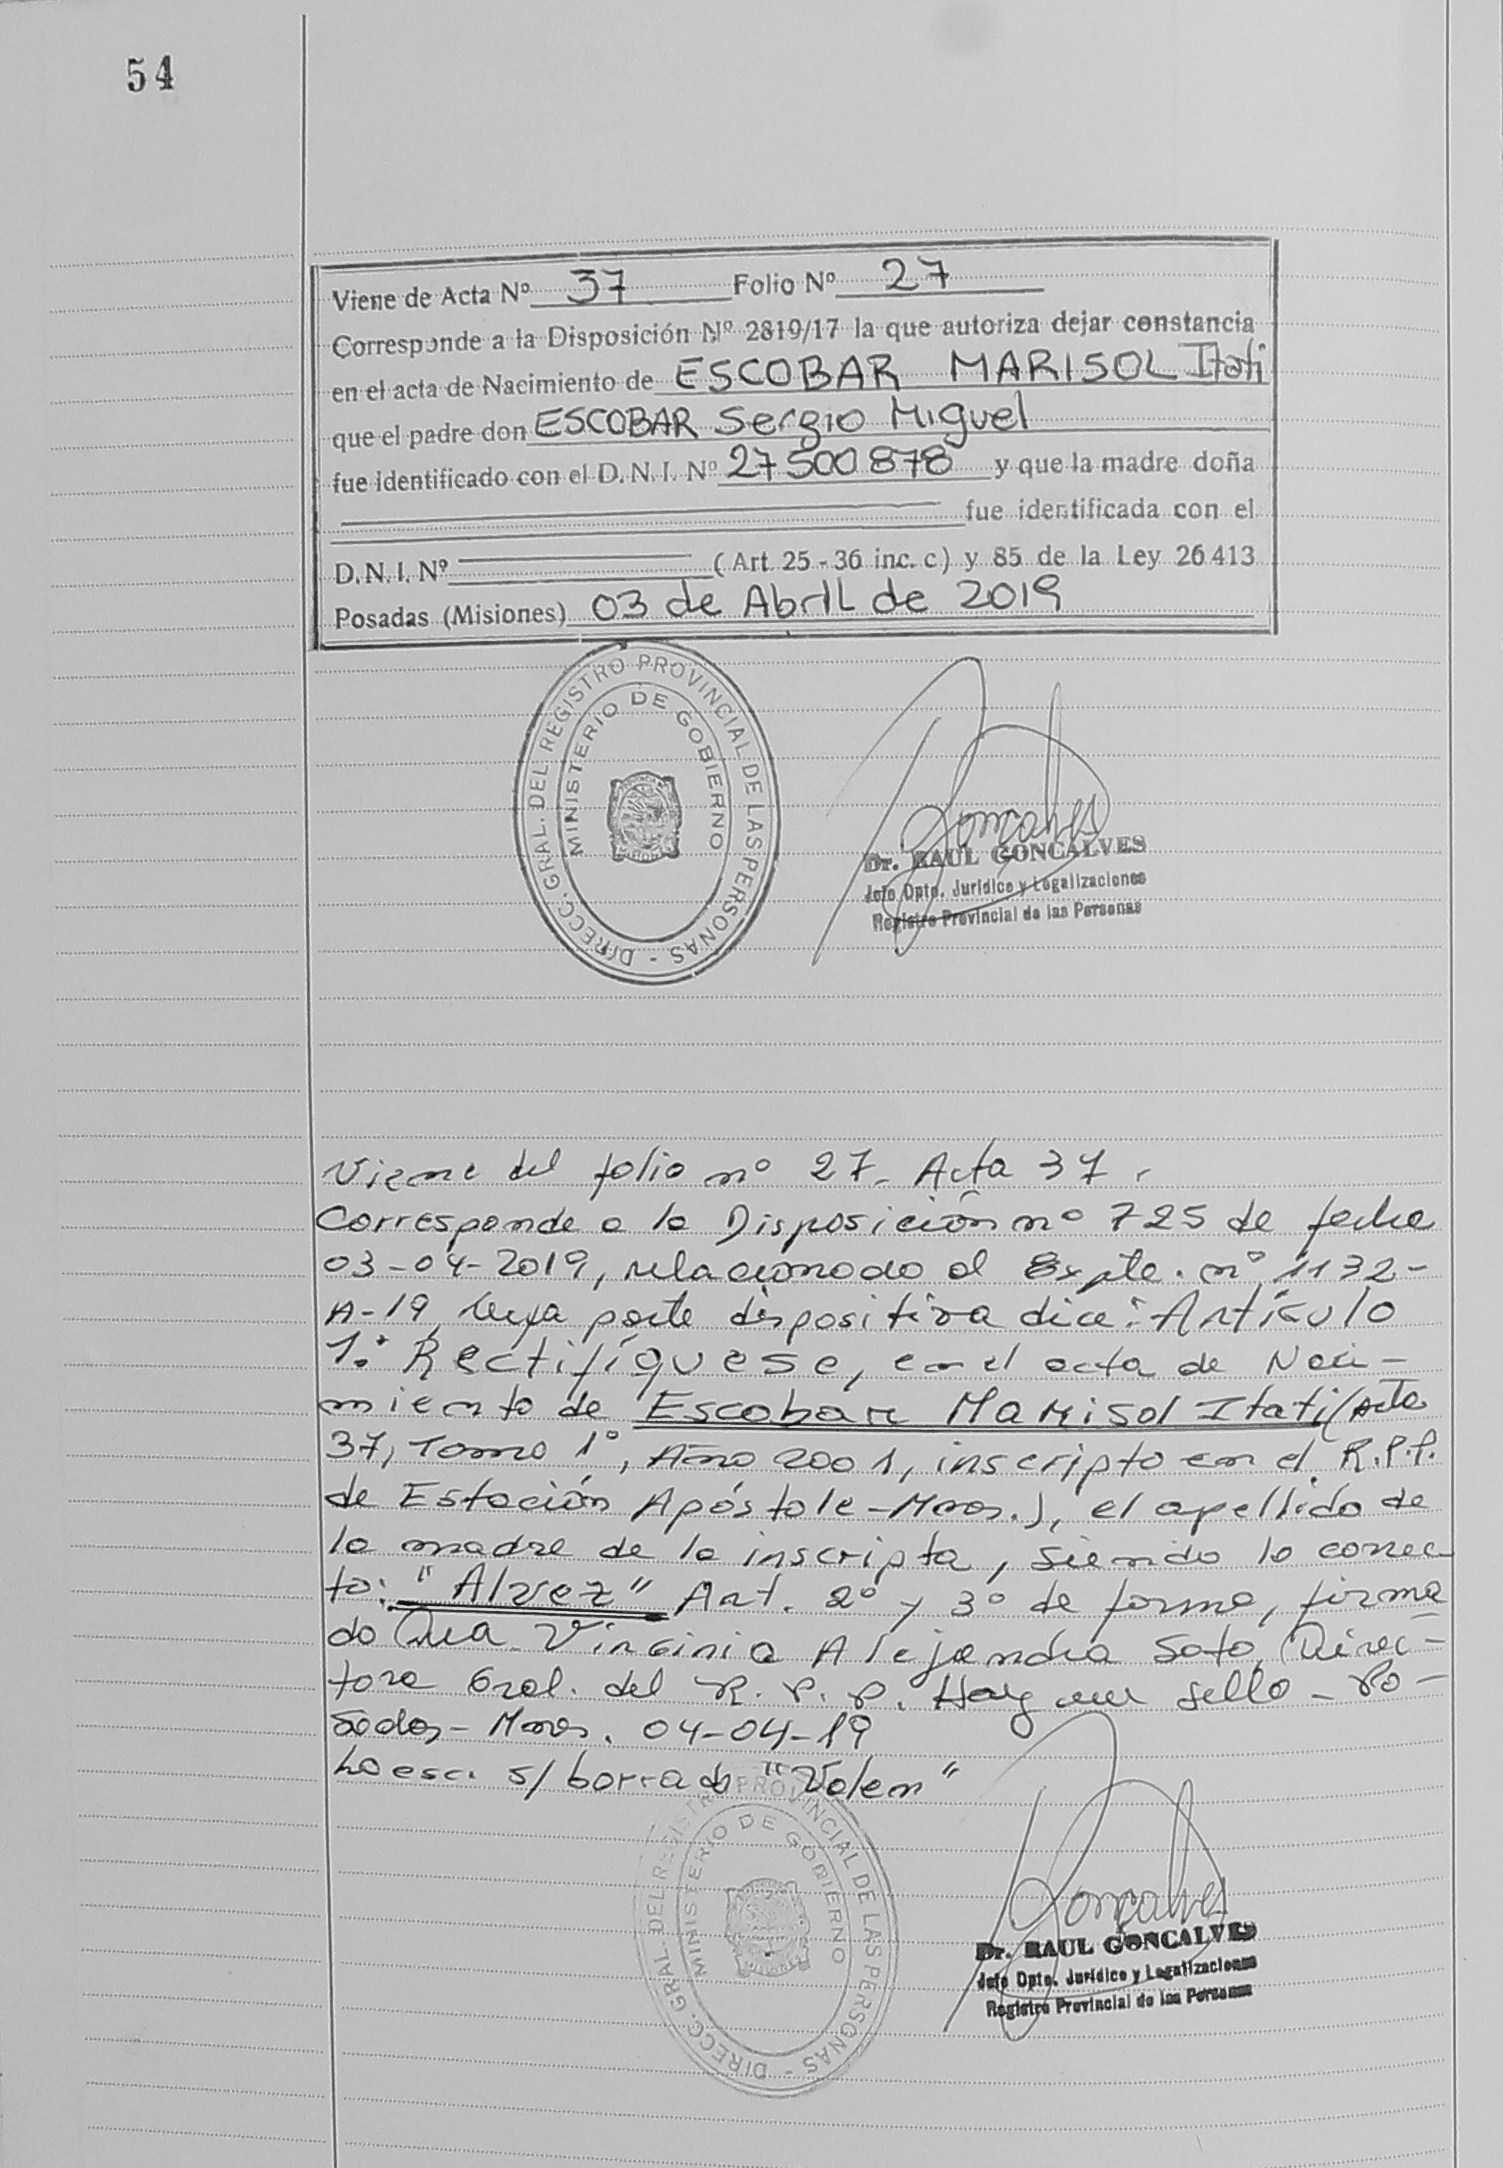 54
Viene de Acta Nº 37 Folio Nº 27
Corresponde a la Disposición Nº 2819/17 la que autoriza dejar constancia
en el acta de Nacimiento de ESCOBAR MARISOL Itati
que el padre don ESCOBAR Sergio Miguel
fue identificado con el D. N. I. Nº 27500878 y que la madre doña
fue identificada con el
D. N. I. Nº (Art. 25 - 36 inc. c) y 85 de la Ley 26413
Posadas (Misiones) 03 de Abril de 2019
DIRECC. GRAL. DEL REGISTRO PROVINCIAL DE LAS PERSONAS -
MINISTERIO DE GOBIERNO
Goncalves
Dr. RAUL GONCALVES
Jefe Dpto. Jurídico y Legalizaciones
Registro Provincial de las Personas
Viene del folio nº 27. Acta 37.
Corresponde a la Disposición nº 725 de fecha
03-04-2019, relacionado al Expte. nº 1132-
A-19, cuya parte dispositiva dice: Artículo
1.º Rectifíquese, en el acta de Naci-
miento de Escobar Marisol Itati (Acta
37, Tomo 1º, Año 2001, inscripto en el R.P.P.
de Estación Apóstole-Mnes.), el apellido de
la madre de la inscripta, siendo lo correc-
to: "Alvez" Art. 2º y 3º de forma, firma
do Dra. Virginia Alejandra Soto, Direc-
tora Gral. del R. P. P. Hay un sello - Po-
sadas - Mnes. 04-04-19
Lo esc. s/ borrado "Valen"
DIRECC. GRAL. DEL REGISTRO PROVINCIAL DE LAS PERSONAS -
MINISTERIO DE GOBIERNO
Gonçalves
Dr. RAUL GONCALVES
Jefe Dpto. Jurídico y Legalizaciones
Registro Provincial de las Personas